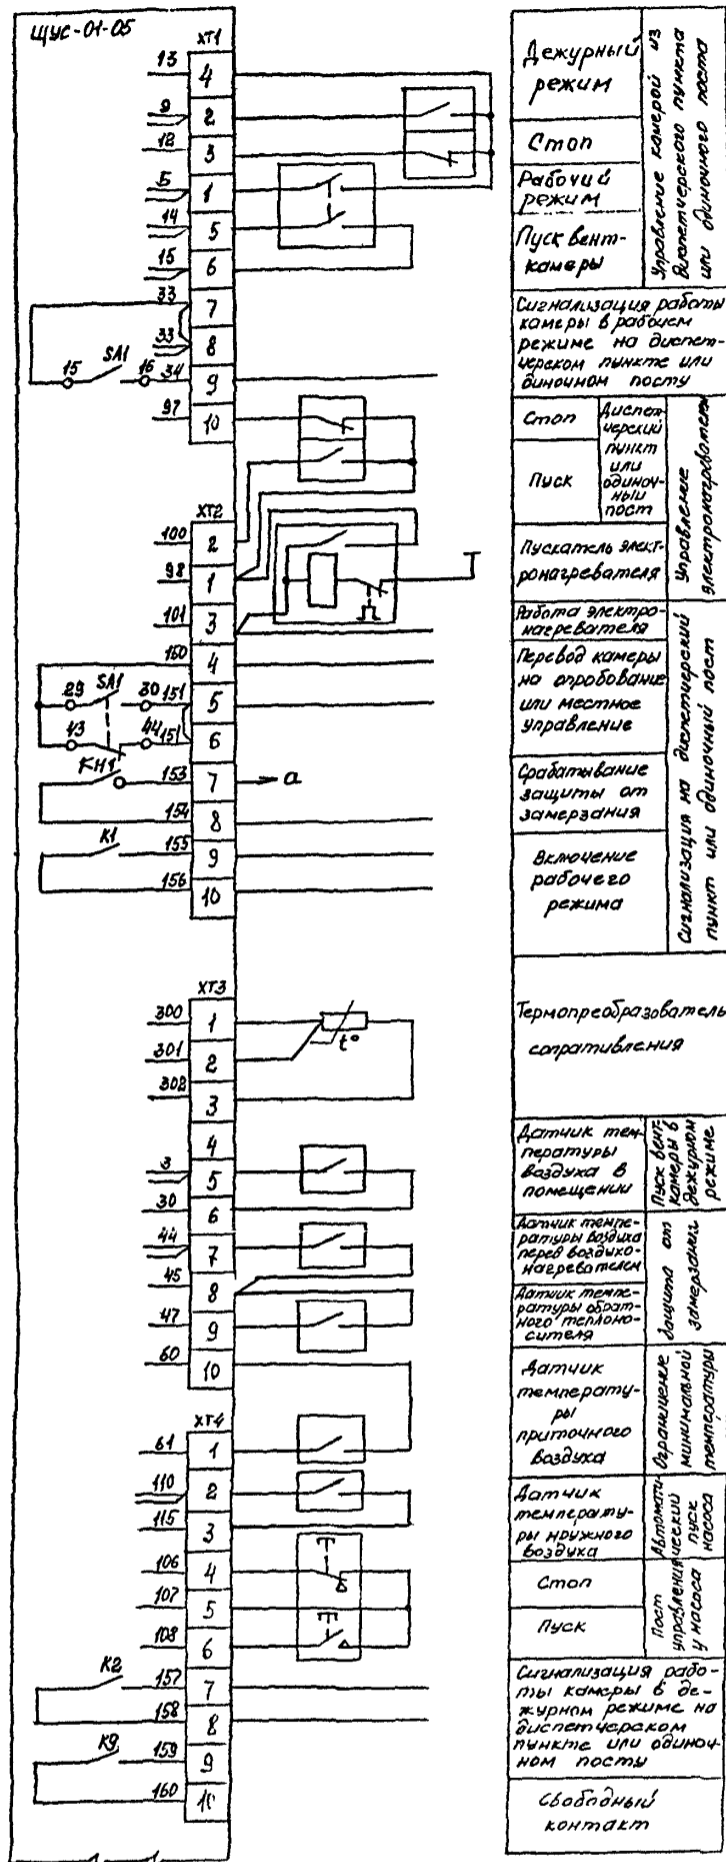 ЩУС-01-05
ХТ1
13 4
9 2
12 3
5 1
14 5
15 6
33 7
33 8
15 SA1 16 34 9
97 10
ХТ2
100 2
98 1
101 3
150 4
29 SA1 30 151 5
43 44 151 6
КН1 153 7 а
154 8
К1 155 9
156 10
ХТ3
300 1
301 2
t°
302 3
4
3 5
30 6
44 7
45 8
47 9
60 10
ХТ4
61 1
110 2
115 3
106 4
107 5
108 6
К2 157 7
158 8
К9 159 9
160 10
Дежурный
режим
Стоп
Рабочий
режим
Пуск вент-
камеры
Управление камерой из
диспетчерского пункта
или одиночного поста
Сигнализация работы
камеры в рабочем
режиме на диспет-
черском пункте или
диночном посту
Стоп
Пуск
Диспет-
черский
пункт
или
одиноч-
ный
пост
Пускатель элект-
ронагревателя
Управление
электронагревателем
Работа электро-
нагревателя
Перевод камеры
на опробование
или местное
управление
Срабатывание
защиты от
замерзания
Включение
рабочего
режима
Сигнализация на диспетчерский
пункт или одиночный пост
Термопреобразователь
сопративления
Датчик тем-
пературы
воздуха в
помещении
Пуск вент-
камеры в
дежурном
режиме
Датчик темпе-
ратуры воздуха
перед воздухо-
нагревателем
Датчик темпе-
ратуры обрат-
ного теплоно-
сителя
Защита от
замерзания
Датчик
температу-
ры
приточного
воздуха
Ограничение
минимальной
температуры
Датчик
температу-
ры нружного
воздуха
Автомати-
ческий
пуск
насоса
Стоп
Пуск
Пост
управления
у насоса
Сигнализация рабо-
ты камеры в де-
журном режиме на
диспетчерском
пункте или одиноч-
ном посту
Свободный
контакт